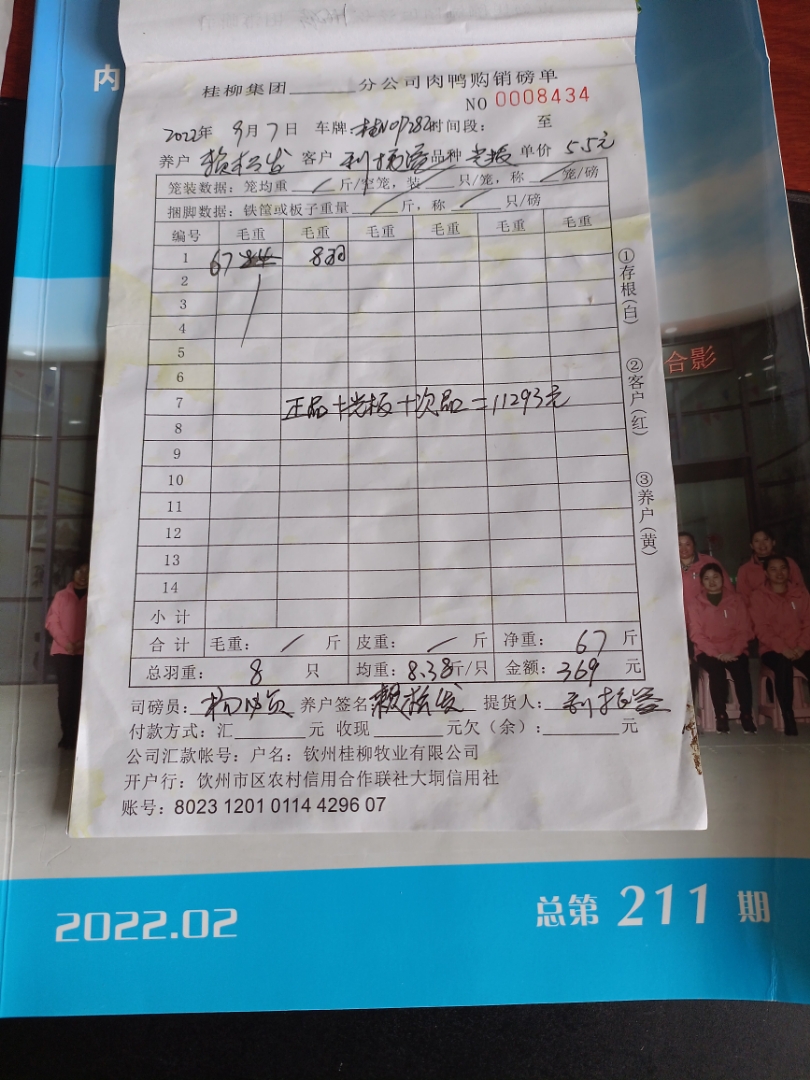 内
桂柳集团______分公司肉鸭购销磅单
NO 0008434
2022年 9月7日 车牌: 时间段: 至
养户 客户 品种 光板 单价 5.5元
笼装数据：笼均重 / 斤/空笼，装 / 只/笼，称 / 笼/磅
捆脚数据：铁筐或板子重量 / 斤，称 / 只/磅
编号 毛重 毛重 毛重 毛重 毛重 毛重
1 67 8羽
2
3
4
5
6
7 正品+光板+次品=11293元
8
9
10
11
12
13
14
小计
合计 毛重： / 斤 皮重： / 斤 净重： 67 斤
总羽重： 8 只 均重：8.38斤/只 金额：369 元
司磅员： 养户签名 提货人：
付款方式：汇______元 收现______元欠（余）：______元
公司汇款帐号：户名：钦州桂柳牧业有限公司
开户行：钦州市区农村信用合作联社大垌信用社
账号：8023 1201 0114 4296 07
①存根(白)
②客户(红)
③养户(黄)
合影
2022.02
总第 211 期